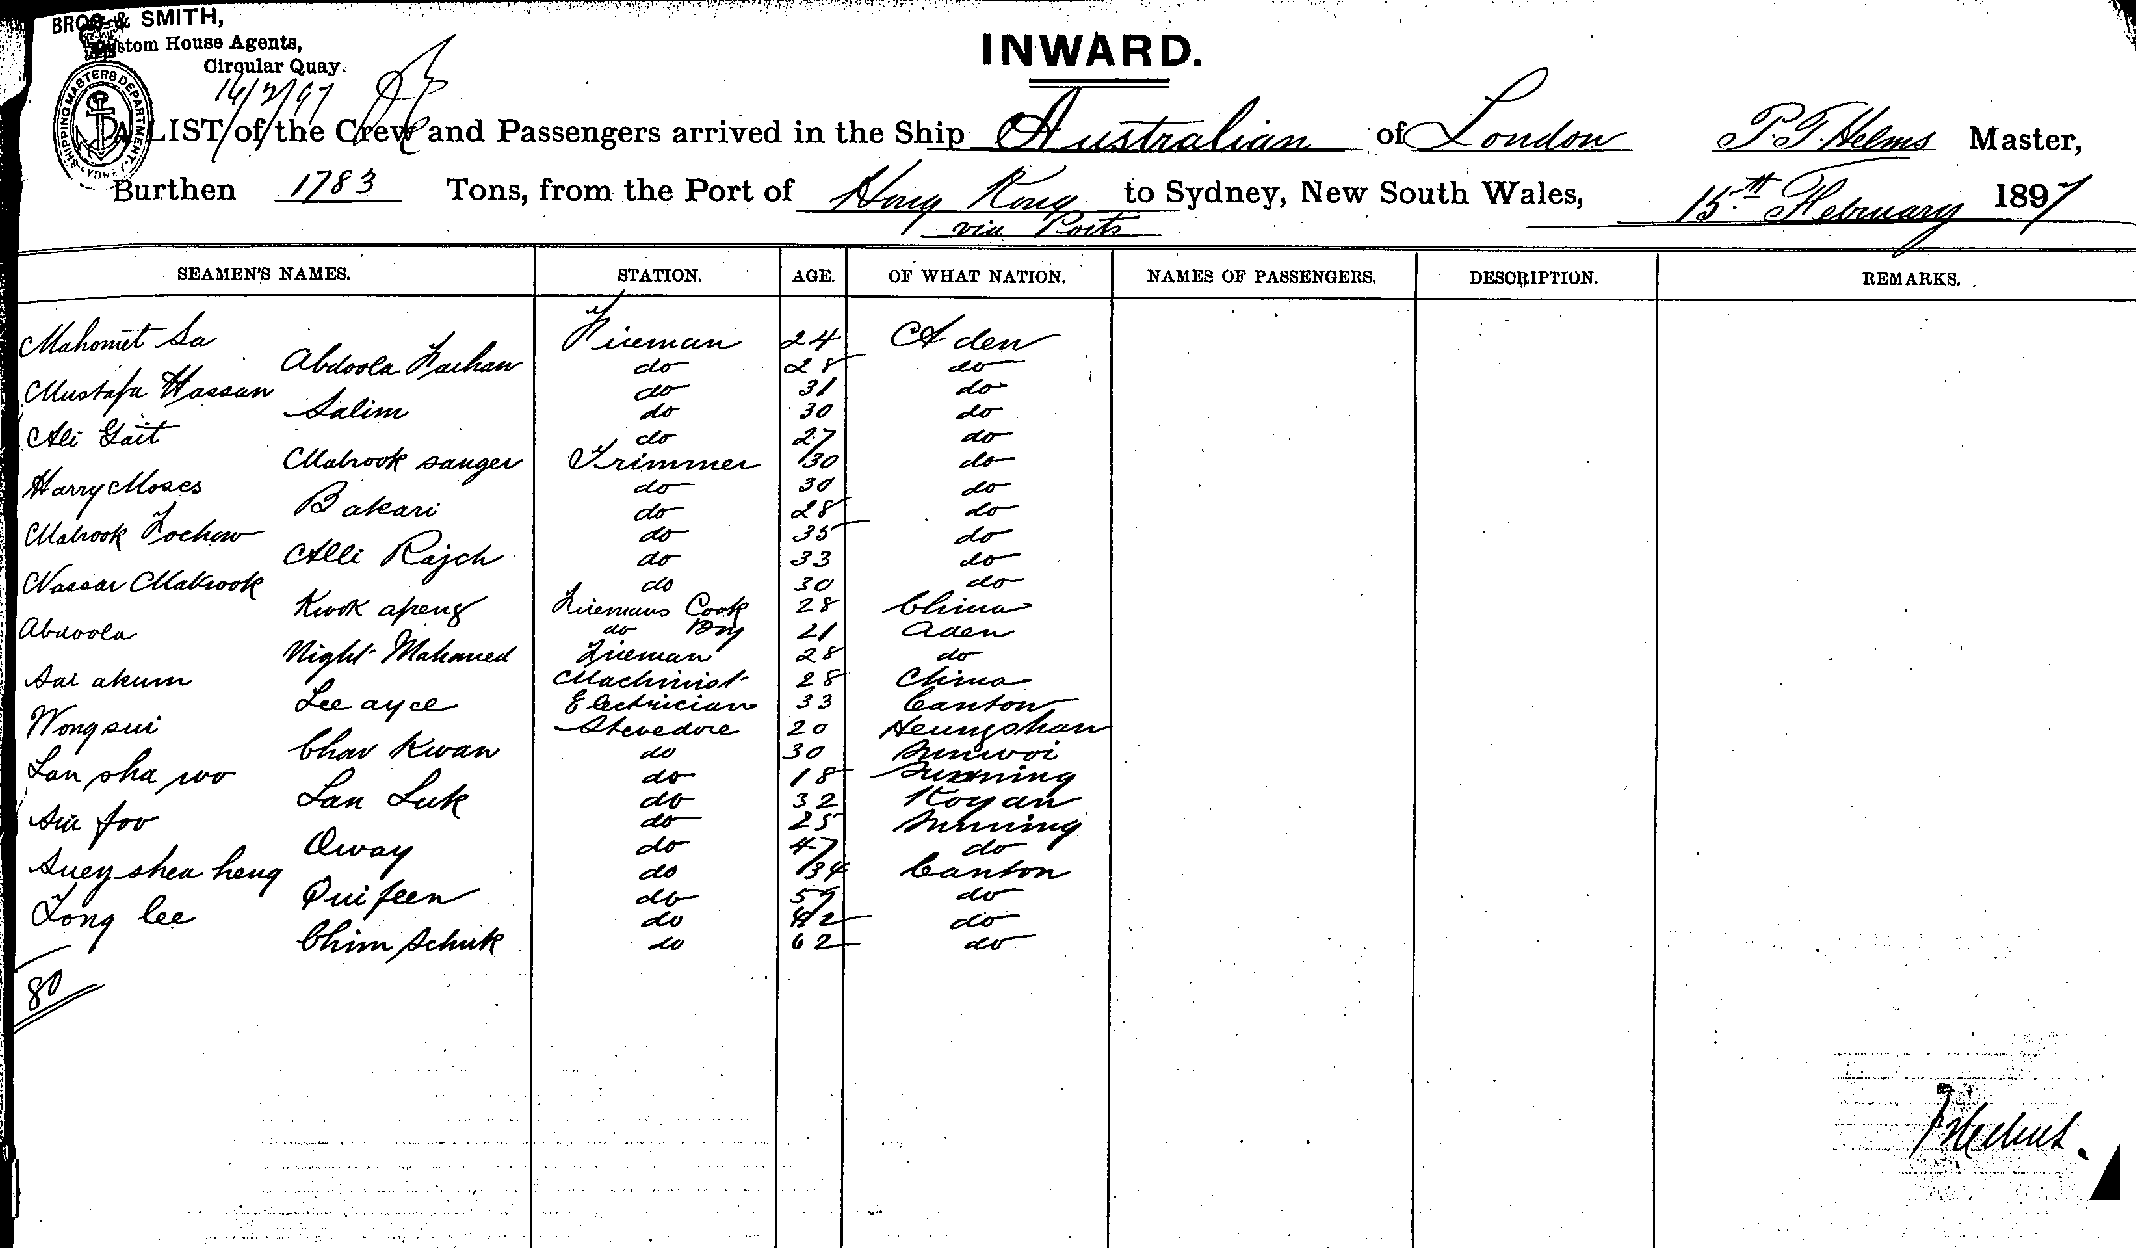 BROS & SMITH,
Custom House Agents,
Circular Quay.
16/2/97
SHIPPING MASTERS DEPARTMENT
INWARD.
A LIST of the Crew and Passengers arrived in the Ship Australian of London P. T. Helms Master,
Burthen 1783 Tons, from the Port of Hong Kong to Sydney, New South Wales, 15th February 1897
via Ports
SEAMEN'S NAMES. STATION. AGE. OF WHAT NATION. NAMES OF PASSENGERS. DESCRIPTION. REMARKS.
Mahomet Sa Fireman 24 Aden
Abdoola Farhan do 28 do
Mustafa Hassan do 31 do
Salim do 30 do
Ali Gait do 27 do
Mabrook sanger Trimmer 30 do
Harry Moses do 30 do
Bakari do 28 do
Mabrook Fochow do 35 do
Alli Rajch do 33 do
Nassar Mabrook do 30 do
Kwok apeng Firemans Cook 28 China
Abdoola do Boy 21 Aden
Night Mahomed Fireman 28 do
Sai akum Machinist 28 China
Lee ayee Electrician 33 Canton
Wong sui Stevedore 20 Heungshan
Chav Kwan do 30 Sunwoi
Lan sha wo do 18 Sunning
Lan Luk do 32 Koyan
Siu foo do 25 Sunning
Qway do 47 do
Suey shea heng do 34 Canton
Qui feen do 57 do
Tong lee do 42 do
Chim Schuk do 62 do
80